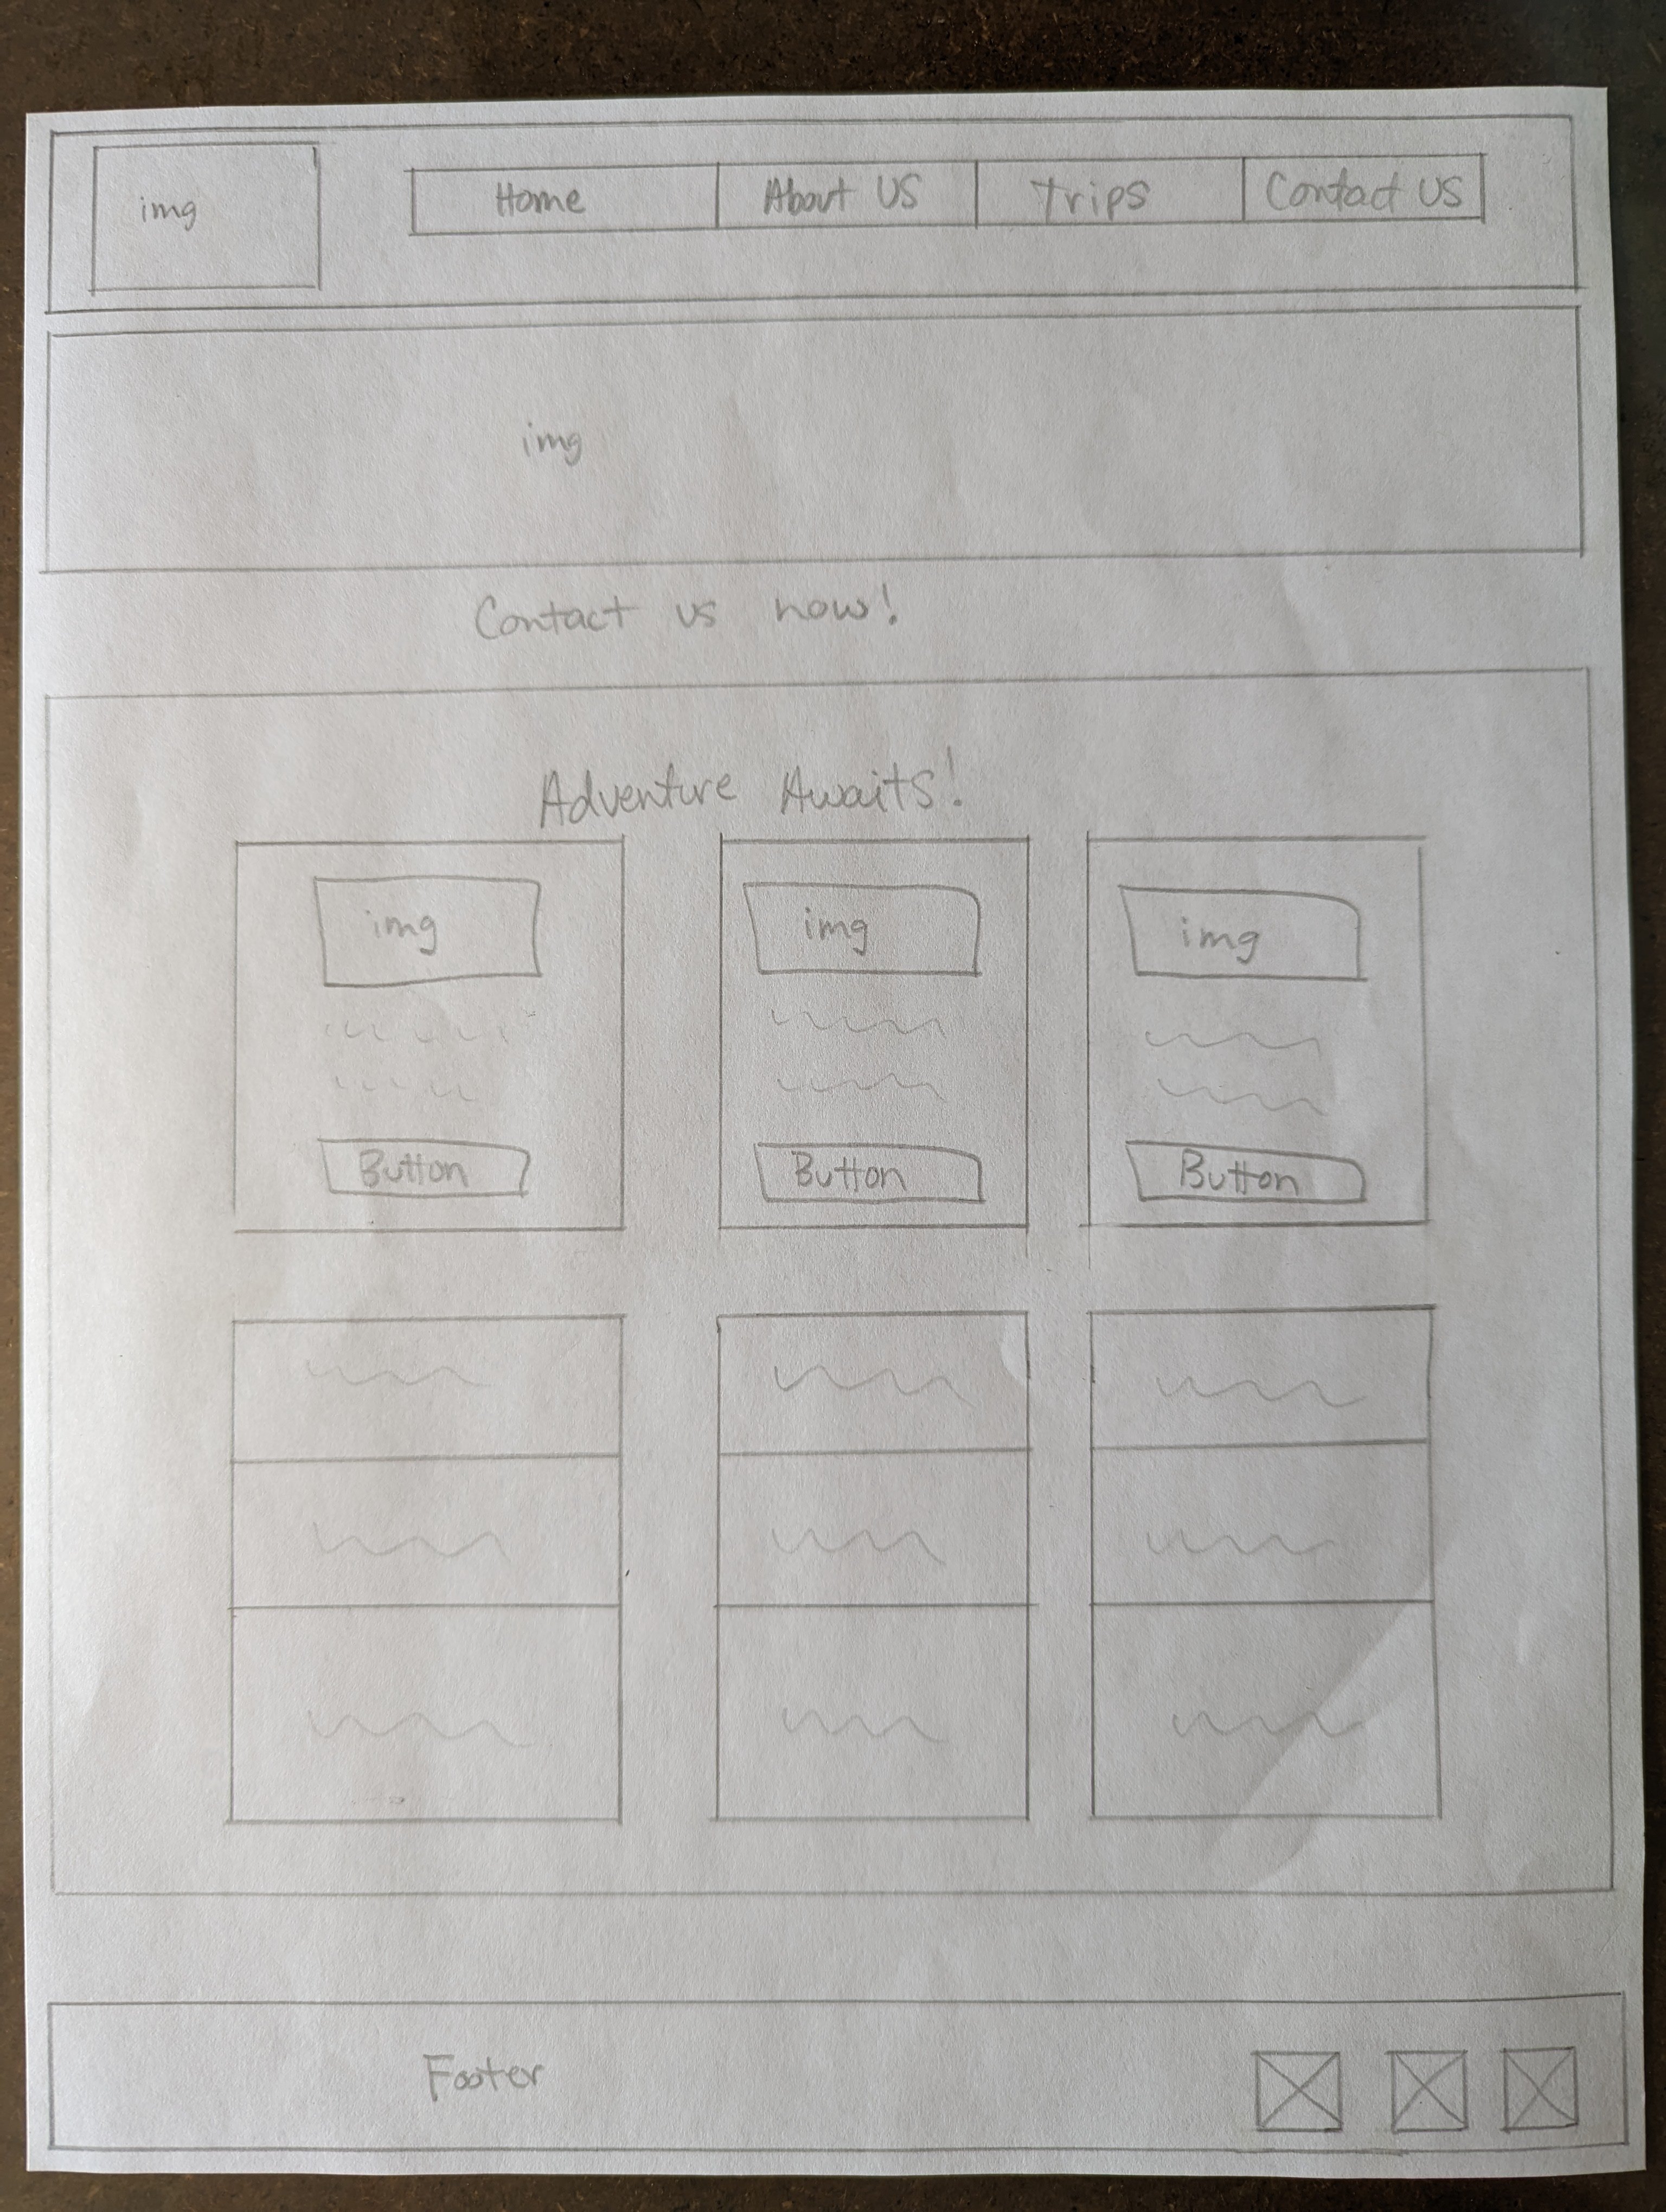 img
Home About US Trips Contact US
img
Contact us now!
Adventure Awaits!
img img img
Button Button Button
Footer